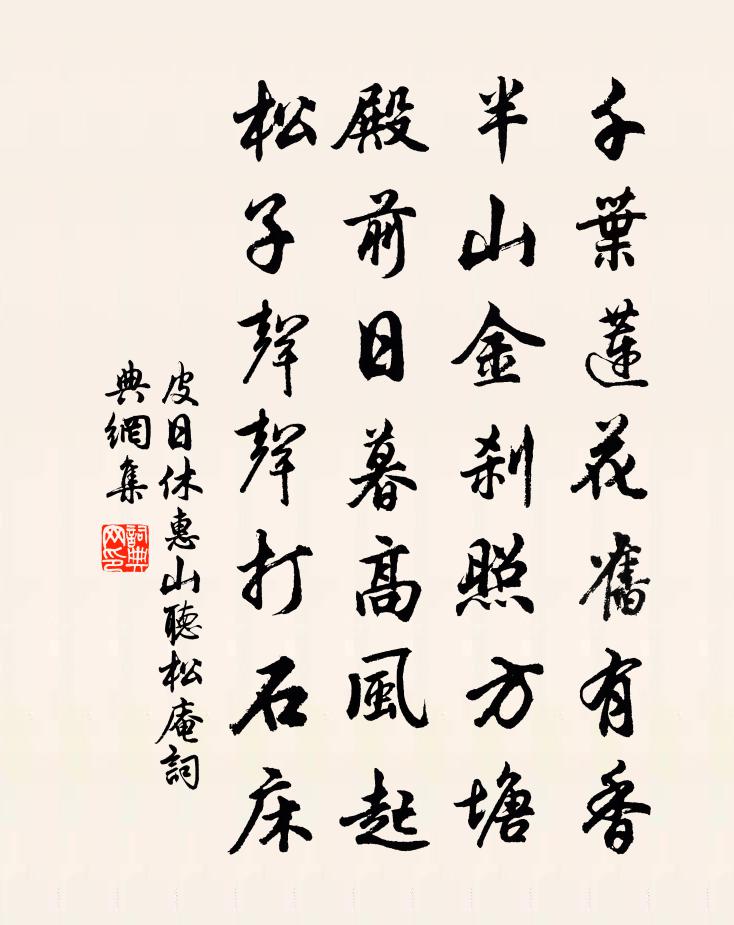 千葉蓮花舊有香
半山金刹照方塘
殿前日暮高風起
松子聲聲打石床
皮日休惠山聽松庵詞
典網集
詞典
网印